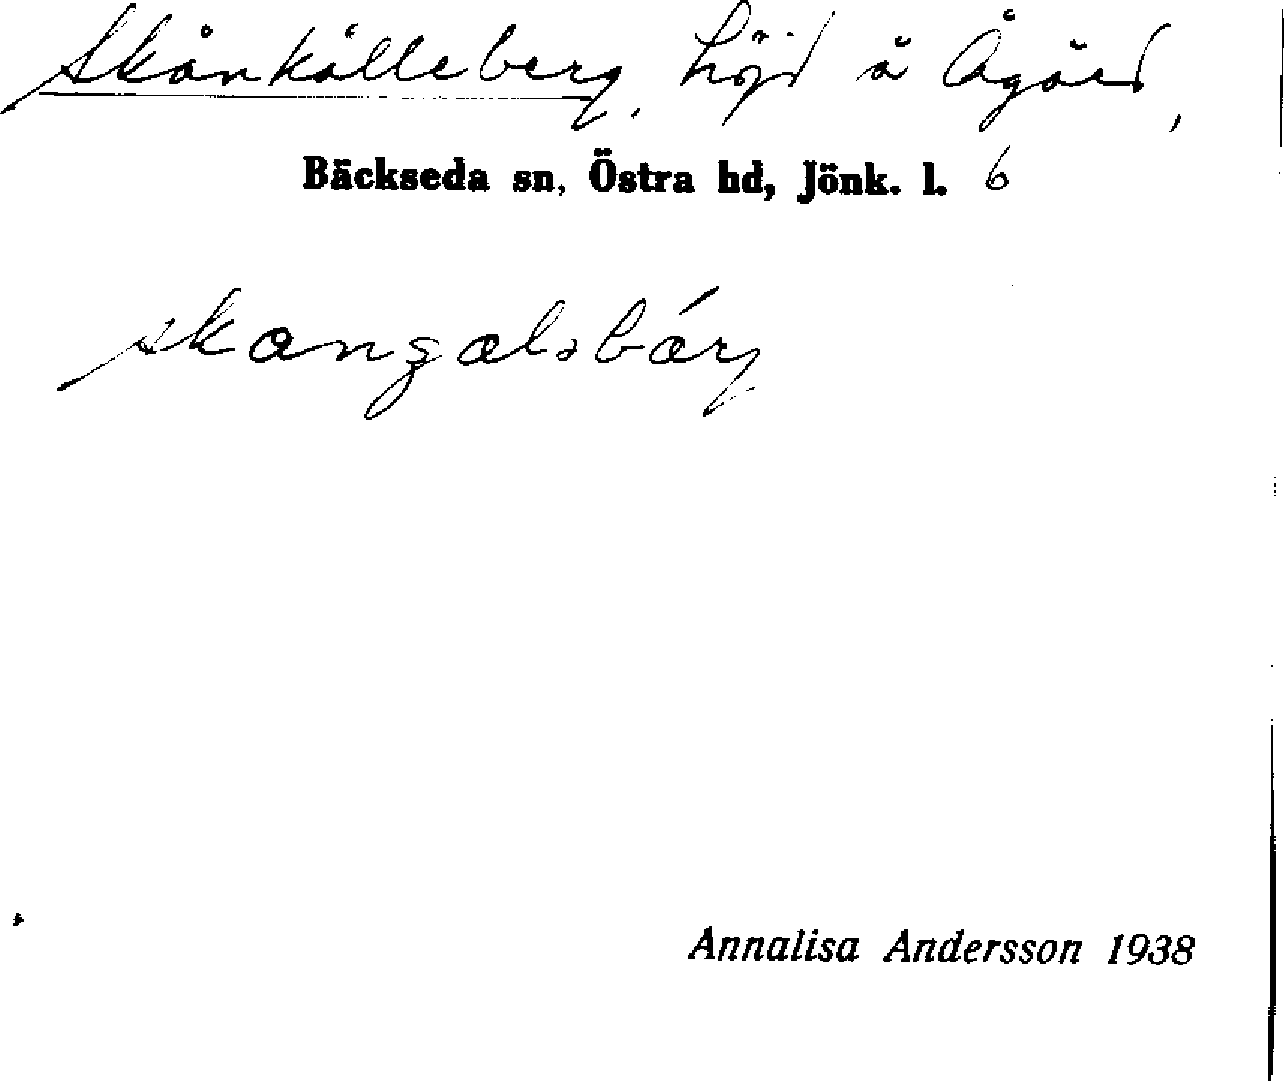 Skånkålleberg, höjd å Ågård,
Bäckseda sn, Östra hd, Jönk. l. 6
Annalisa Andersson 1938